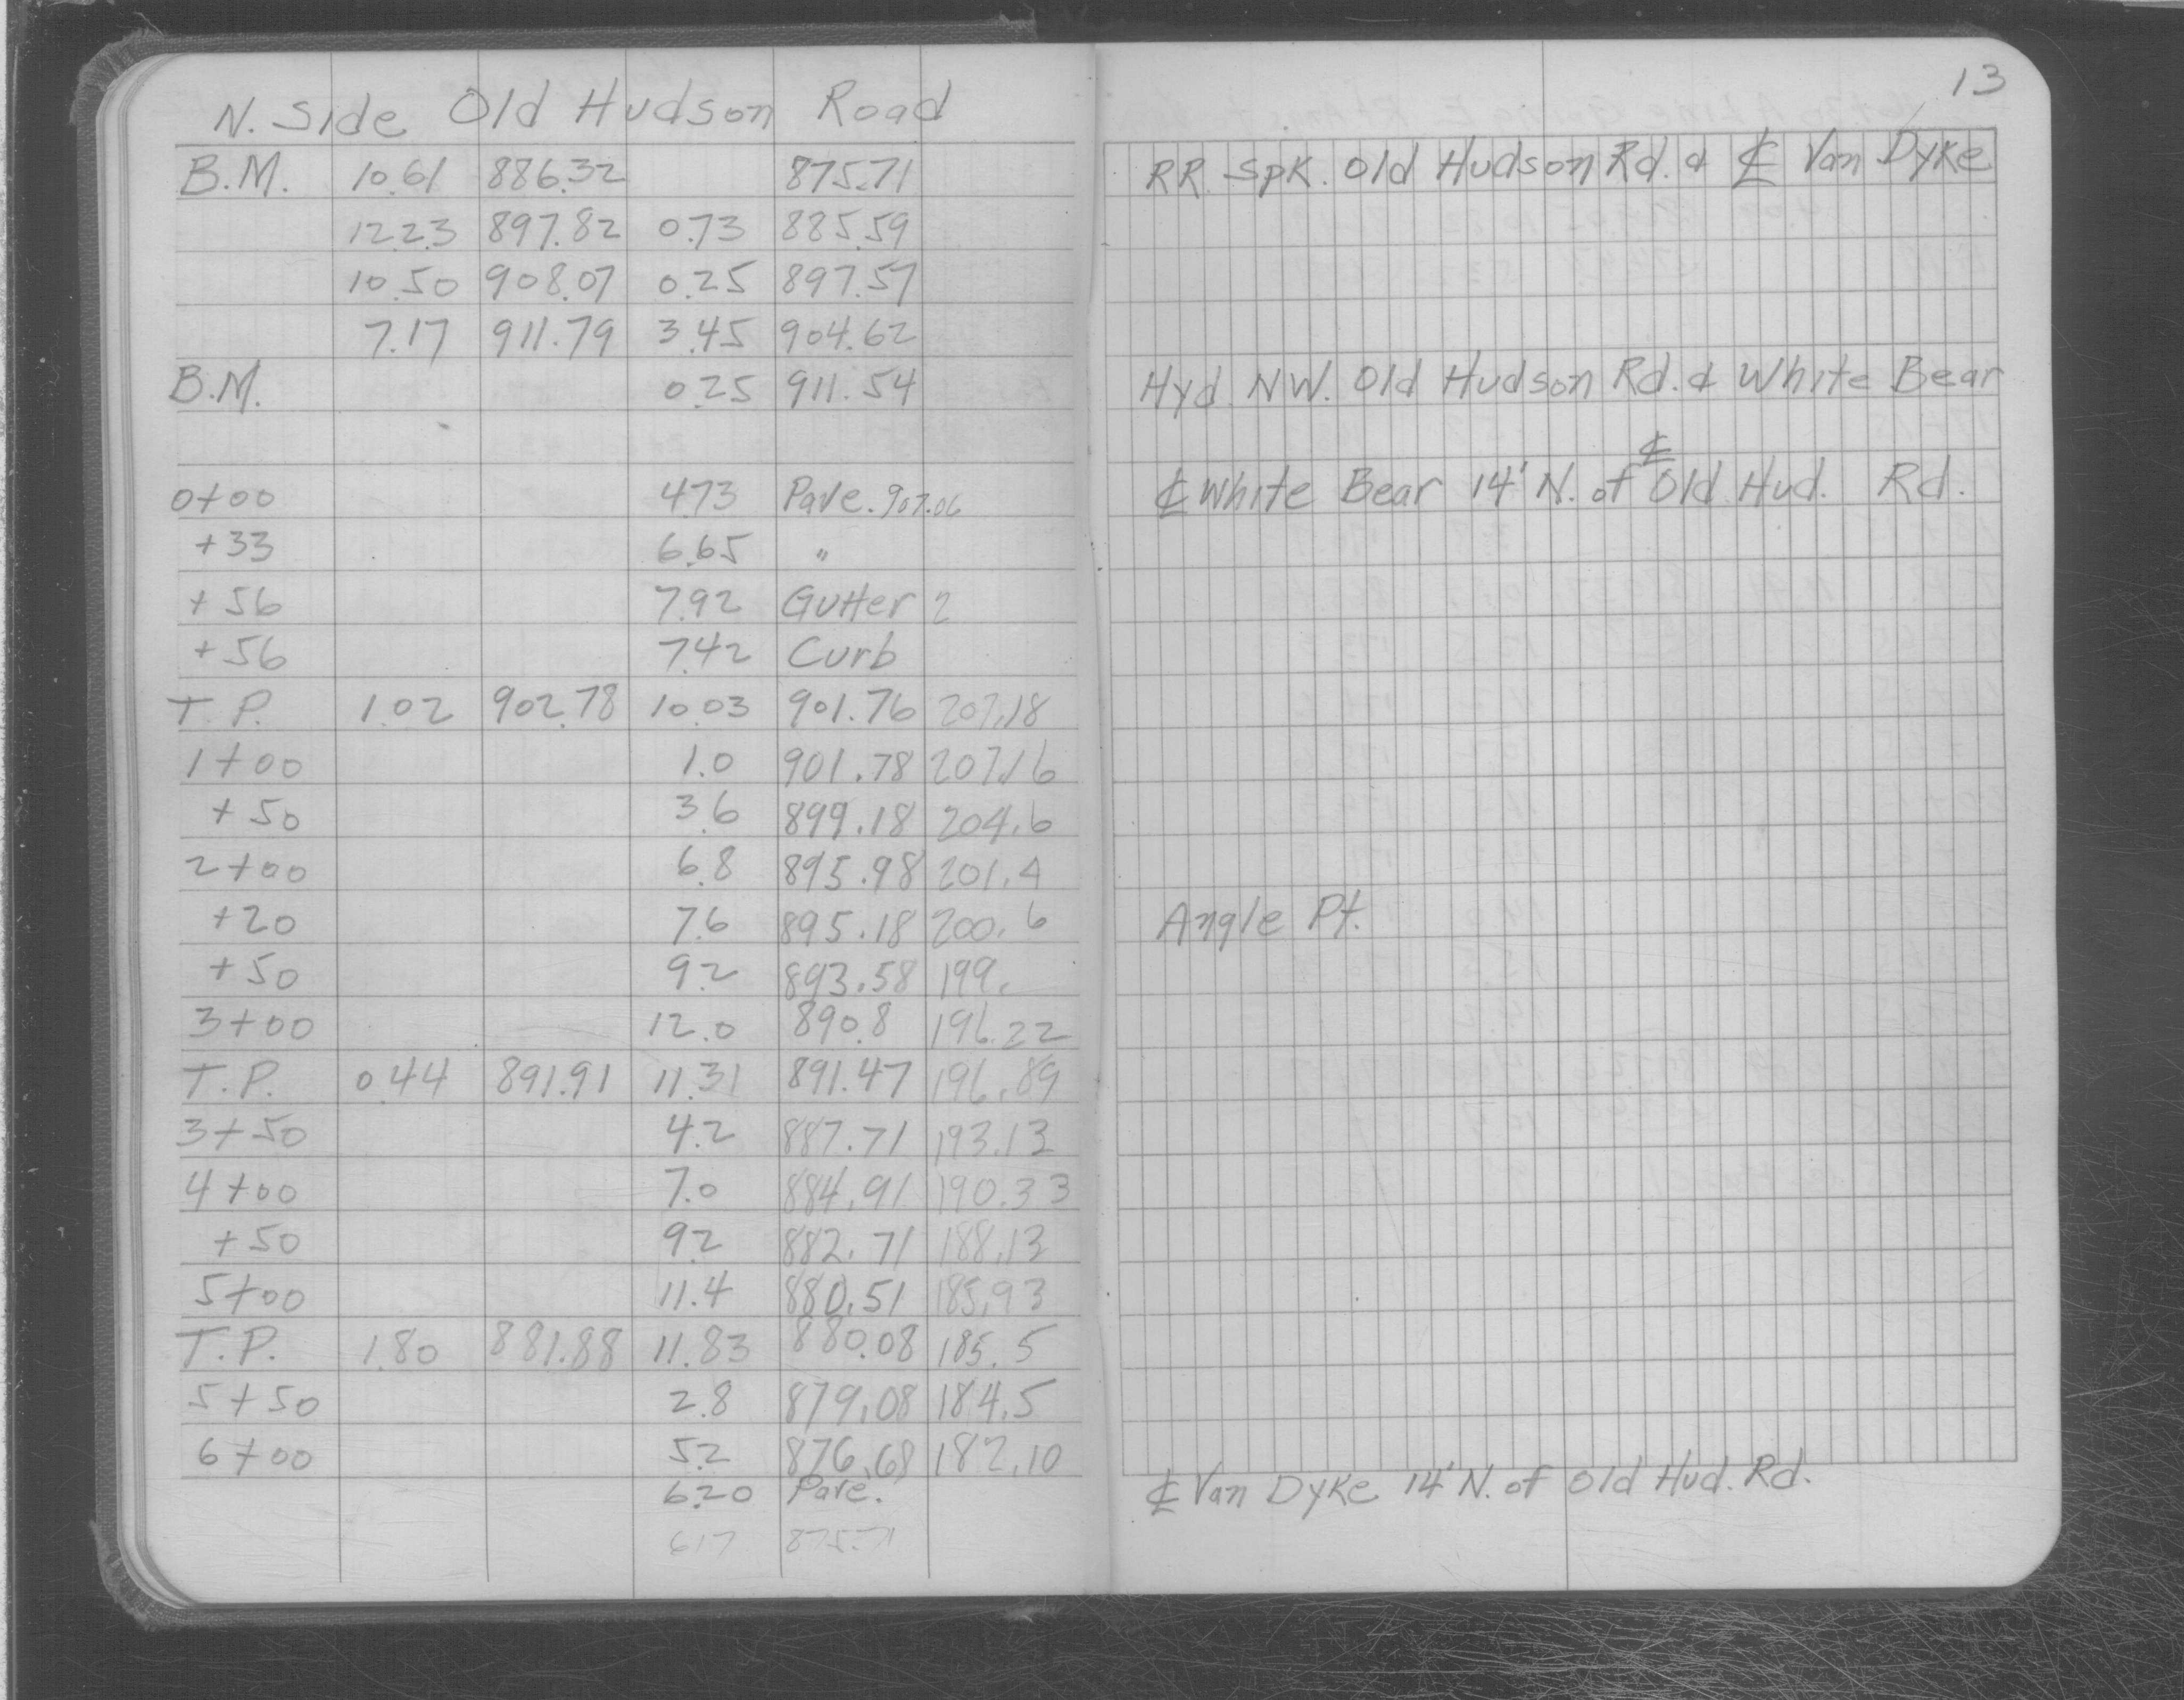 13
N. Side Old Hudson Road
B.M. 10.61 886.32 875.71 RR. Spk. Old Hudson Rd. & ℄ Van Dyke
12.23 897.82 0.73 885.59
10.50 908.07 0.25 897.57
7.17 911.79 3.45 904.62
B.M. 0.25 911.54 Hyd. NW. Old Hudson Rd. & White Bear
℄
0+00 4.73 Pave. 907.06 ℄ White Bear 14' N. of Old Hud. Rd.
+33 6.65 "
+56 7.92 Gutter 2
+56 7.42 Curb
T.P. 1.02 902.78 10.03 901.76 207.18
1+00 1.0 901.78 207.16
+50 3.6 899.18 204.6
2+00 6.8 895.98 201.4
+20 7.6 895.18 200.6 Angle Pt.
+50 9.2 893.58 199.
3+00 12.0 890.8 196.22
T.P. 0.44 891.91 11.31 891.47 196.89
3+50 4.2 887.71 193.13
4+00 7.0 884.91 190.33
+50 9.2 882.71 188.13
5+00 11.4 880.51 185.93
T.P. 1.80 881.88 11.83 880.08 185.5
5+50 2.8 879.08 184.5
6+00 5.2 876.68 182.10
6.20 Pave. ℄ Van Dyke 14' N. of Old Hud. Rd.
6.17 875.71